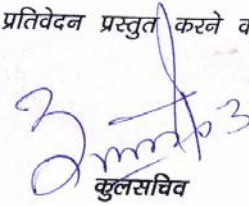 प्रतिवेदन प्रस्तुत करने
कुलसचिव